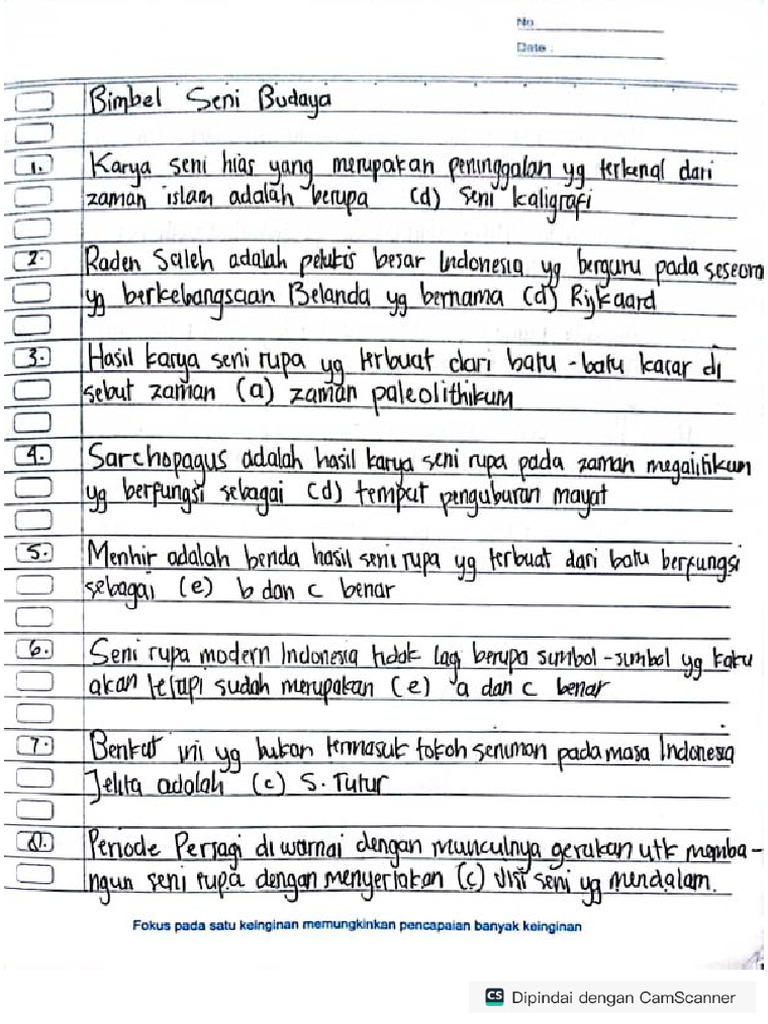 No
Date :
Bimbel Seni Budaya
1. Karya seni hias yang merupakan peninggalan yg terkenal dari
zaman islam adalah berupa (d) seni kaligrafi
2. Raden Saleh adalah pelukis besar Indonesia yg berguru pada seseora
yg berkebangsaan Belanda yg bernama (d) Rijkaard
3. Hasil karya seni rupa yg terbuat dari batu-batu kacar di
sebut zaman (a) zaman paleolithikum
4. Sarchopagus adalah hasil karya seni rupa pada zaman megalitikum
yg berfungsi sebagai (d) tempat penguburan mayat
5. Menhir adalah benda hasil seni rupa yg terbuat dari batu berfungsi
sebagai (e) b dan c benar
6. Seni rupa modern Indonesia tidak lag berupa simbol-simbol yg kaku
akan tetapi sudah merupakan (e) a dan c benar
7. Berikut ini yg bukan termasuk tokoh seniman pada masa Indonesia
Jelita adalah (c) S. Tutur
8. Periode Persagi di warnai dengan munculnya gerakan utk memba-
ngun seni rupa dengan menyertakan (c) visi seni yg mendalam.
Fokus pada satu keinginan memungkinkan pencapaian banyak keinginan
CS Dipindai dengan CamScanner